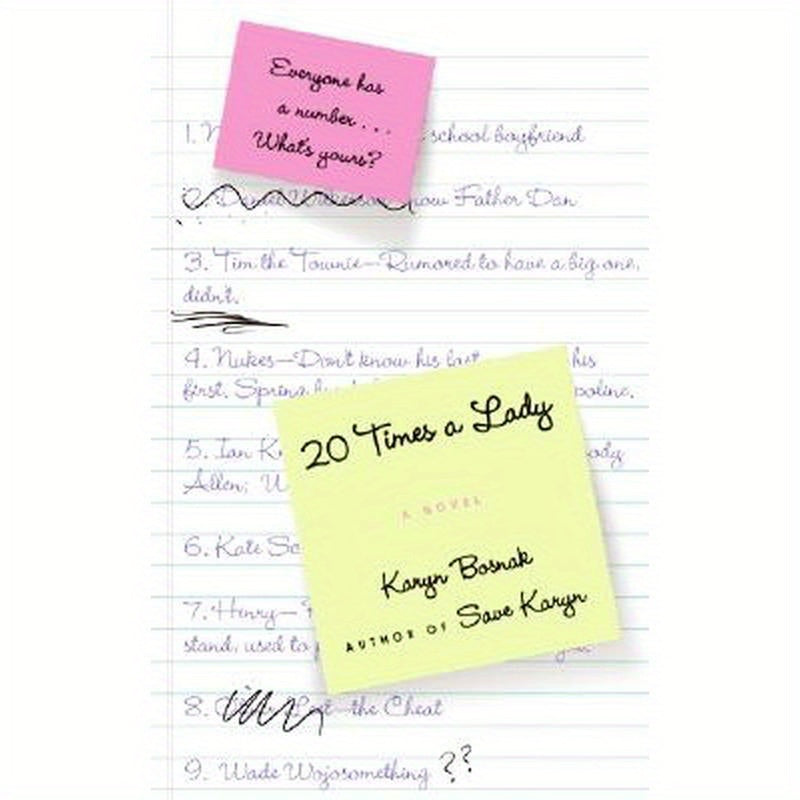 Everyone has
a number . . .
What's yours?
1. N school boyfriend
2. Daniel Wilkerson now Father Dan
3. Tim the Townie—Rumored to have a big one,
didn't.
4. Nukes—Don't know his last his
first. Spring
5. Ian K ody
Allen; W
20 Times a Lady
A NOVEL
Karyn Bosnak
AUTHOR OF Save Karyn
6. Kate Sc
7. Henry—
stand, used to
8. the Cheat
9. Wade Wojosomething ??